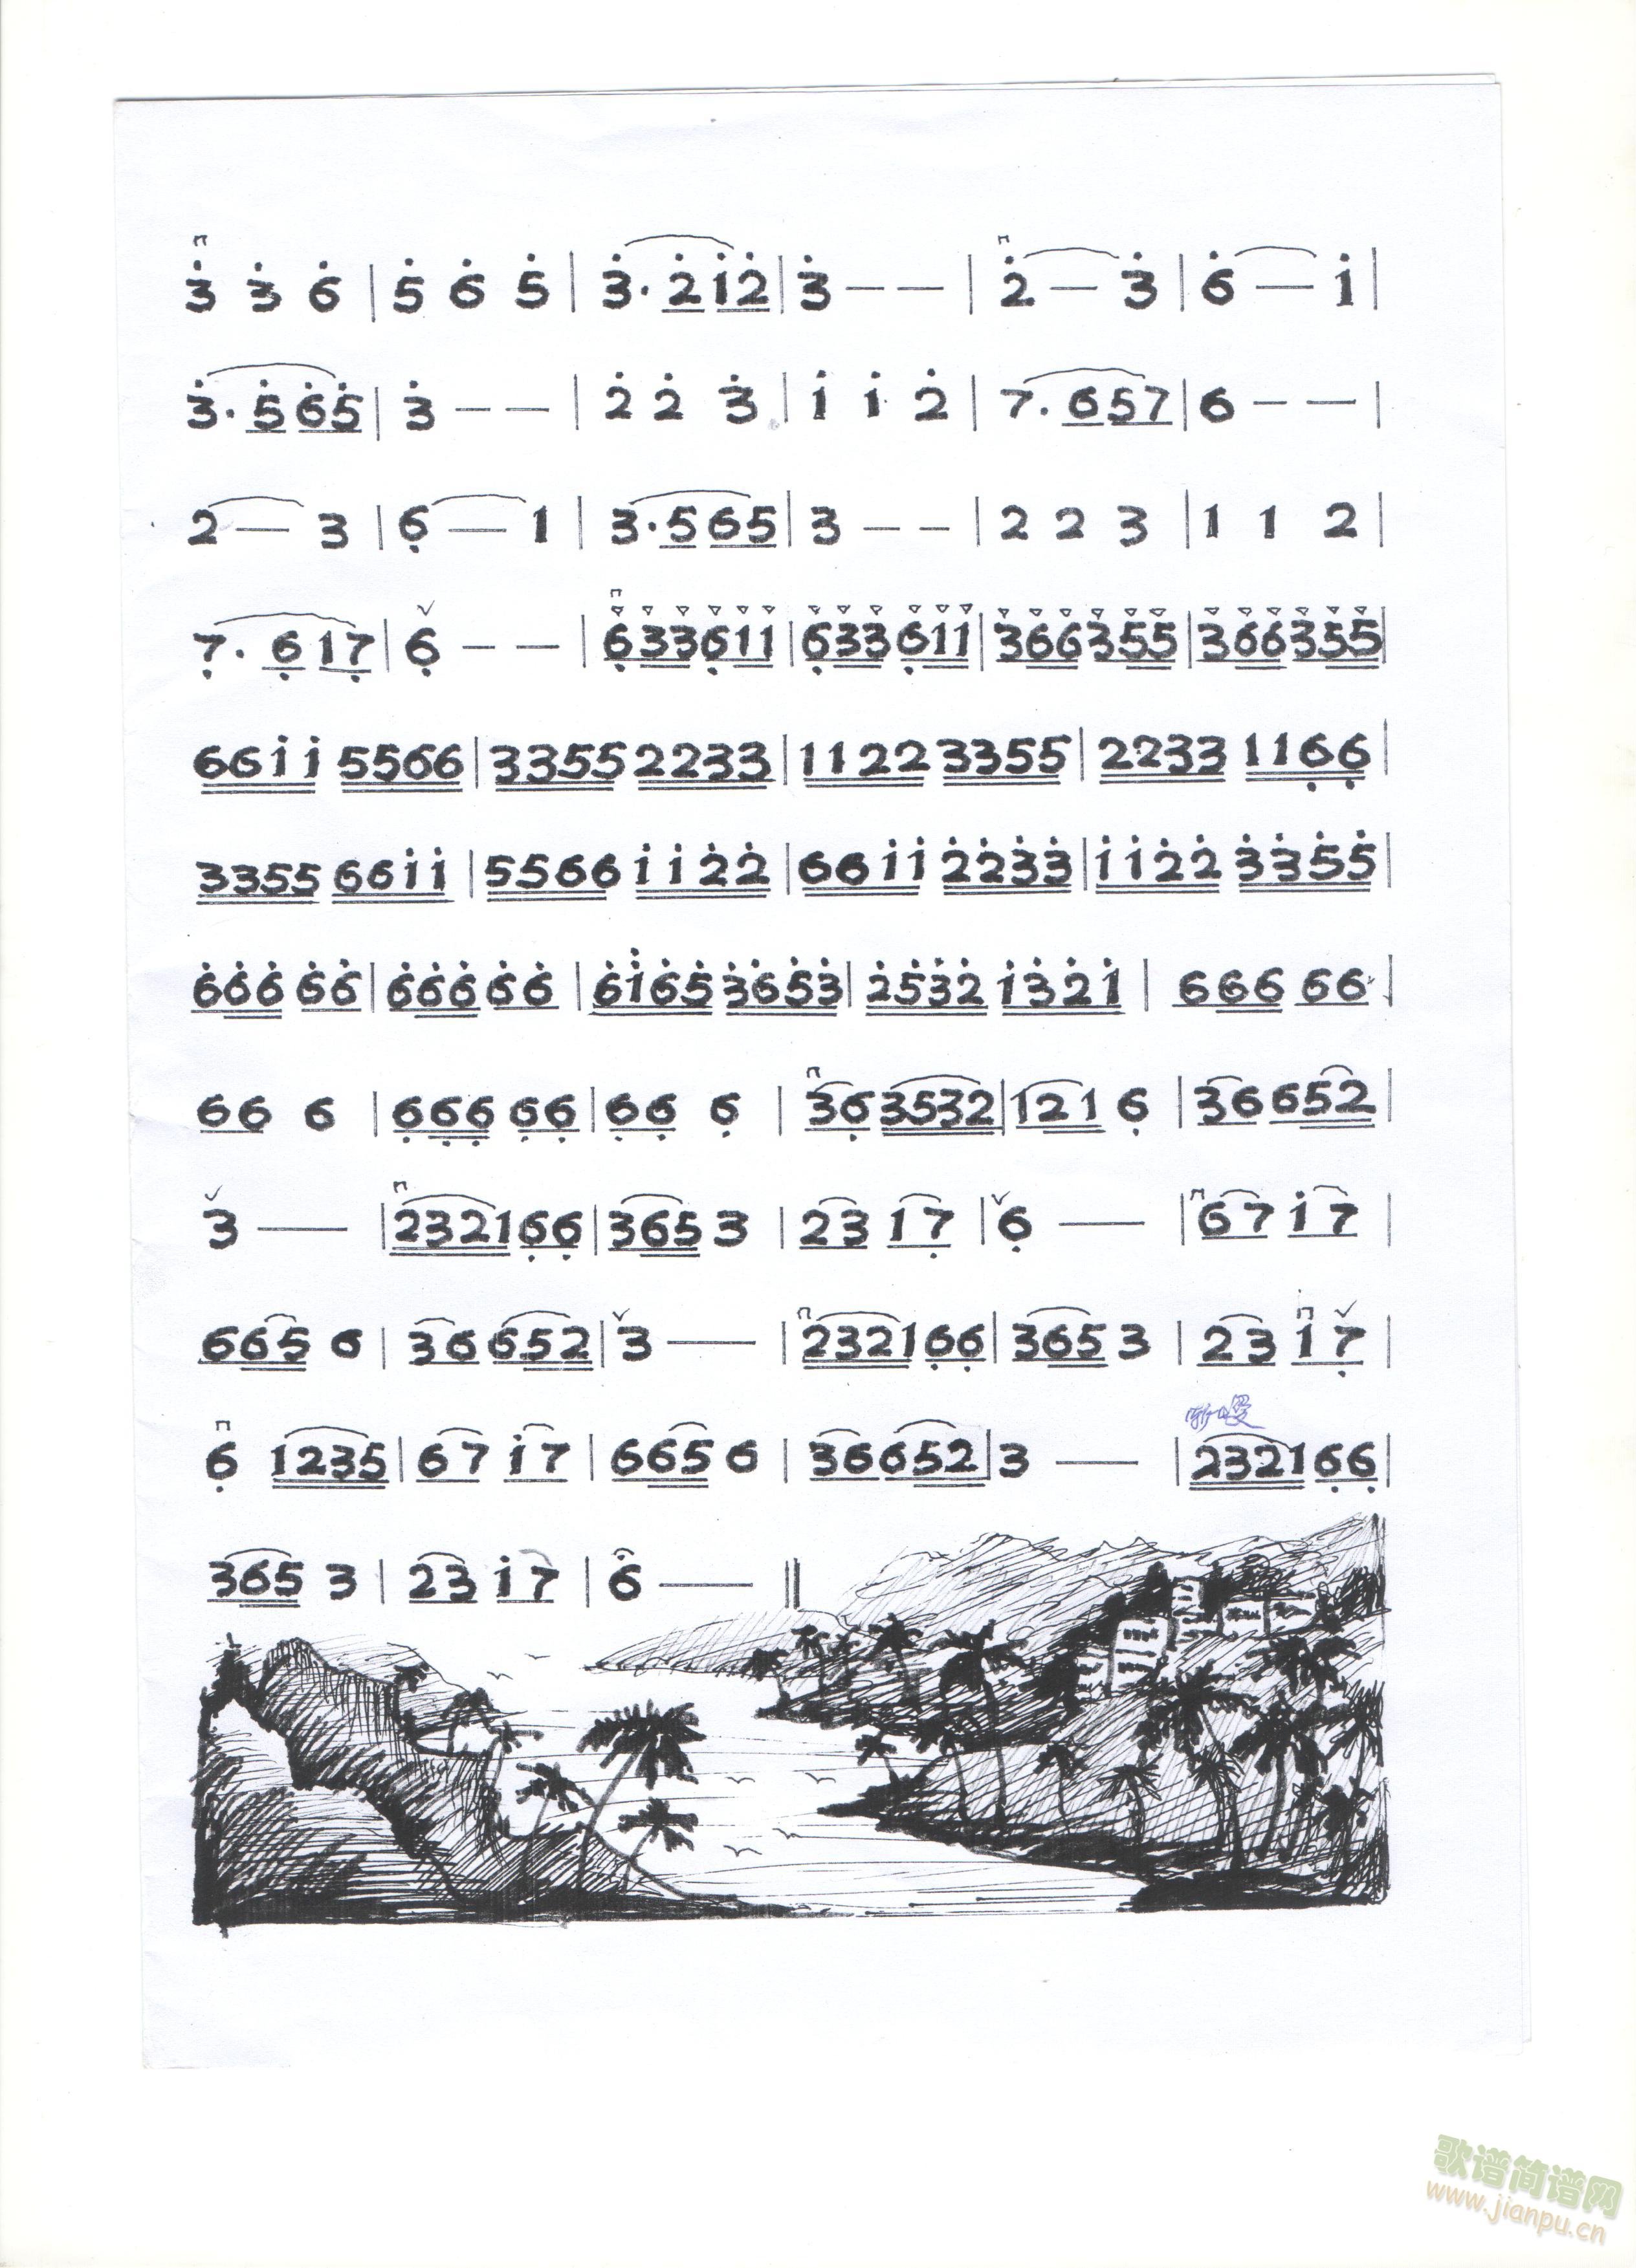 3̇ 3̇ 6̇ | 5̇ 6̇ 5̇ | 3̇· 2̇ 1̇ 2̇ | 3̇ — — | 2̇ — 3̇ | 6̇ — 1̇ |
3̇· 5̇ 6̇ 5̇ | 3̇ — — | 2̇ 2̇ 3̇ | 1̇ 1̇ 2̇ | 7· 6 5 7 | 6 — — |
2 — 3 | 6̣ — 1 | 3· 5 6 5 | 3 — — | 2 2 3 | 1 1 2 |
7̣· 6̣ 1 7̣ | 6̣ — — | 6̣ 3 3 6̣ 1 1 | 6̣ 3 3 6̣ 1 1 | 3 6 6 3 5 5 | 3 6 6 3 5 5 |
6 6 1̇ 1̇ 5 5 6 6 | 3 3 5 5 2 2 3 3 | 1 1 2 2 3 3 5 5 | 2 2 3 3 1 1 6̣ 6̣ |
3 3 5 5 6 6 1̇ 1̇ | 5 5 6 6 1̇ 1̇ 2̇ 2̇ | 6 6 1̇ 1̇ 2̇ 2̇ 3̇ 3̇ | 1̇ 1̇ 2̇ 2̇ 3̇ 3̇ 5̇ 5̇ |
6̇ 6̇ 6̇ 6̇ 6̇ | 6̇ 6̇ 6̇ 6̇ 6̇ | 6̇ 1̈ 6̇ 5̇ 3̇ 6̇ 5̇ 3̇ | 2̇ 5̇ 3̇ 2̇ 1̇ 3̇ 2̇ 1̇ | 6 6 6 6 6 |
6 6 6 | 6̣ 6̣ 6̣ 6̣ 6̣ | 6̣ 6̣ 6̣ | 3 6̣ 3 5 3 2 | 1 2 1 6̣ | 3 6 6 5 2 |
3 — | 2 3 2 1 6̣ 6̣ | 3 6 5 3 | 2 3 1 7̣ | 6̣ — | 6 7 1̇ 7 |
6 6 5 6 | 3 6 6 5 2 | 3 — | 2 3 2 1 6̣ 6̣ | 3 6 5 3 | 2 3 1 7̣ |
渐慢
6̣ 1 2 3 5 | 6 7 1̇ 7 | 6 6 5 6 | 3 6 6 5 2 | 3 — | 2 3 2 1 6̣ 6̣ |
3 6 5 3 | 2 3 1̇ 7 | 6 — ‖
歌谱简谱网
www.jianpu.cn